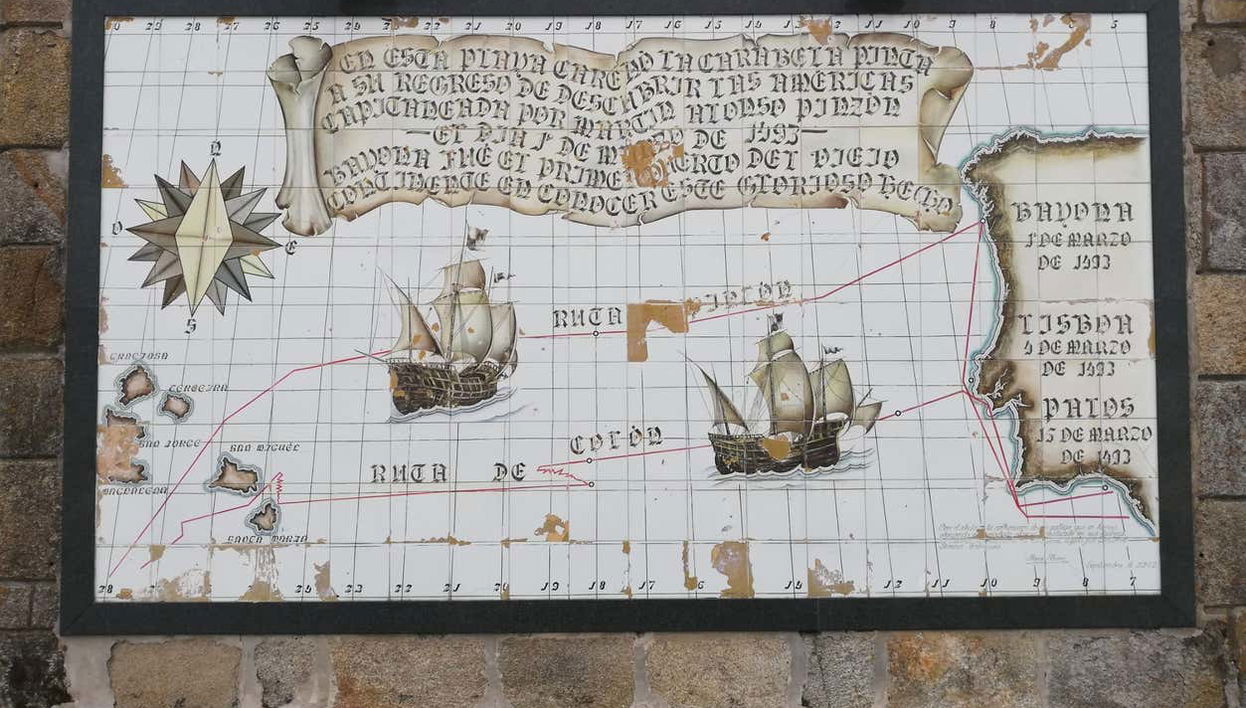 29 28 27 26 25 24 23 22 21 20 19 18 17 16 15 14 13 12 11 10 9 8 5
EN ESTA PLAYA CARENO LA CARABELA PINTA
A SU REGRESO DE DESCUBRIR LAS AMERICAS
CAPITANEADA POR MARTIN ALONSO PINZÓN
—EL DIA 1 DE DE 1493—
BAYONA FUÉ EL PRIMER PUERTO DEL VIEJO
CONTINENTE EN CONOCER ESTE GLORIOSO HECHO
N
O
E
S
BAYONA
1 DE MARZO
DE 1493
RUTA
LISBOA
4 DE MARZO
DE 1493
GRACIOSA
CERCEIRA
PALOS
15 DE MARZO
DE 1493
SAN JORGE
SAN MIGUEL
RUTA DE COLÓN
MAGDALENA
SANTA MARIA
28 24 23 22 21 20 19 18 17 6 14 12 11 10 9 8 7